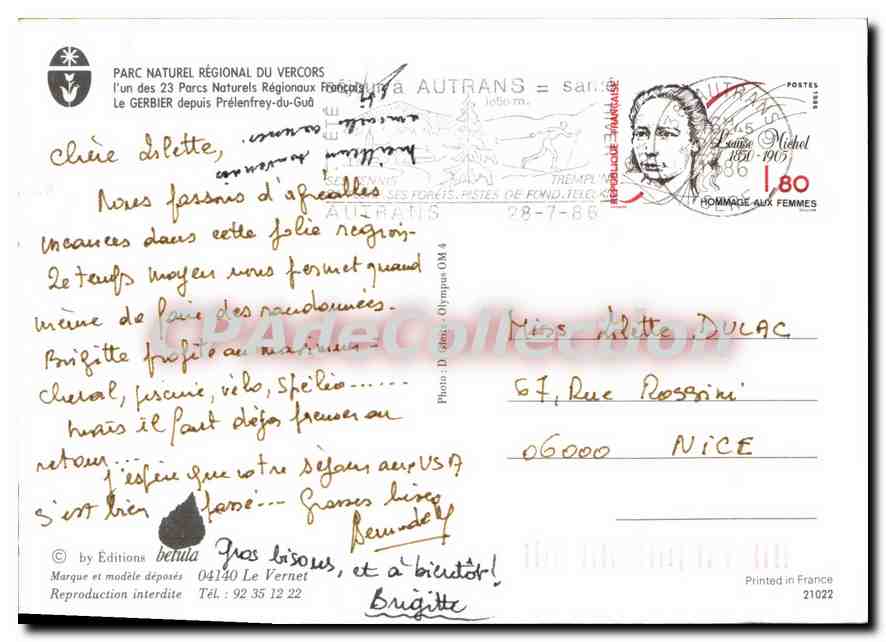 PARC NATUREL RÉGIONAL DU VERCORS
l'un des 23 Parcs Naturels Régionaux Français
Le GERBIER depuis Prélenfrey-du-Guâ
à AUTRANS = santé
1050 m.
ÉTÉ
HIVER
SKI
TREMPLIN
SES FORÊTS, PISTES DE FOND, TÉLÉSKI
AUTRANS 28-7-86
AUTRANS
86
POSTES 1986
RÉPUBLIQUE FRANÇAISE
Louise Michel
1830-1905
1,80
HOMMAGE AUX FEMMES
meilleur souvenir
amicale
Chère Arlette,
Nous passons d'agréables
vacances dans cette jolie région.
Le temps moyen nous permet quand
même de faire des randonnées.
Brigitte profite au maximum -
cheval, piscine, vélo, spéléo......
Mais il faut déjà penser au
retour...
J'espère que votre séjour aux USA
s'est bien passé... Grosses bises
Gros bisous, et à bientôt!
Brigitte
Miss Arlette DULAC
67, Rue Rossini
06000 NICE
Photo : D. - Olympus OM 4
© by Éditions betula
Marque et modèle déposés 04140 Le Vernet
Reproduction interdite Tél. : 92 35 12 22
Printed in France
21022
CPAdeCollection